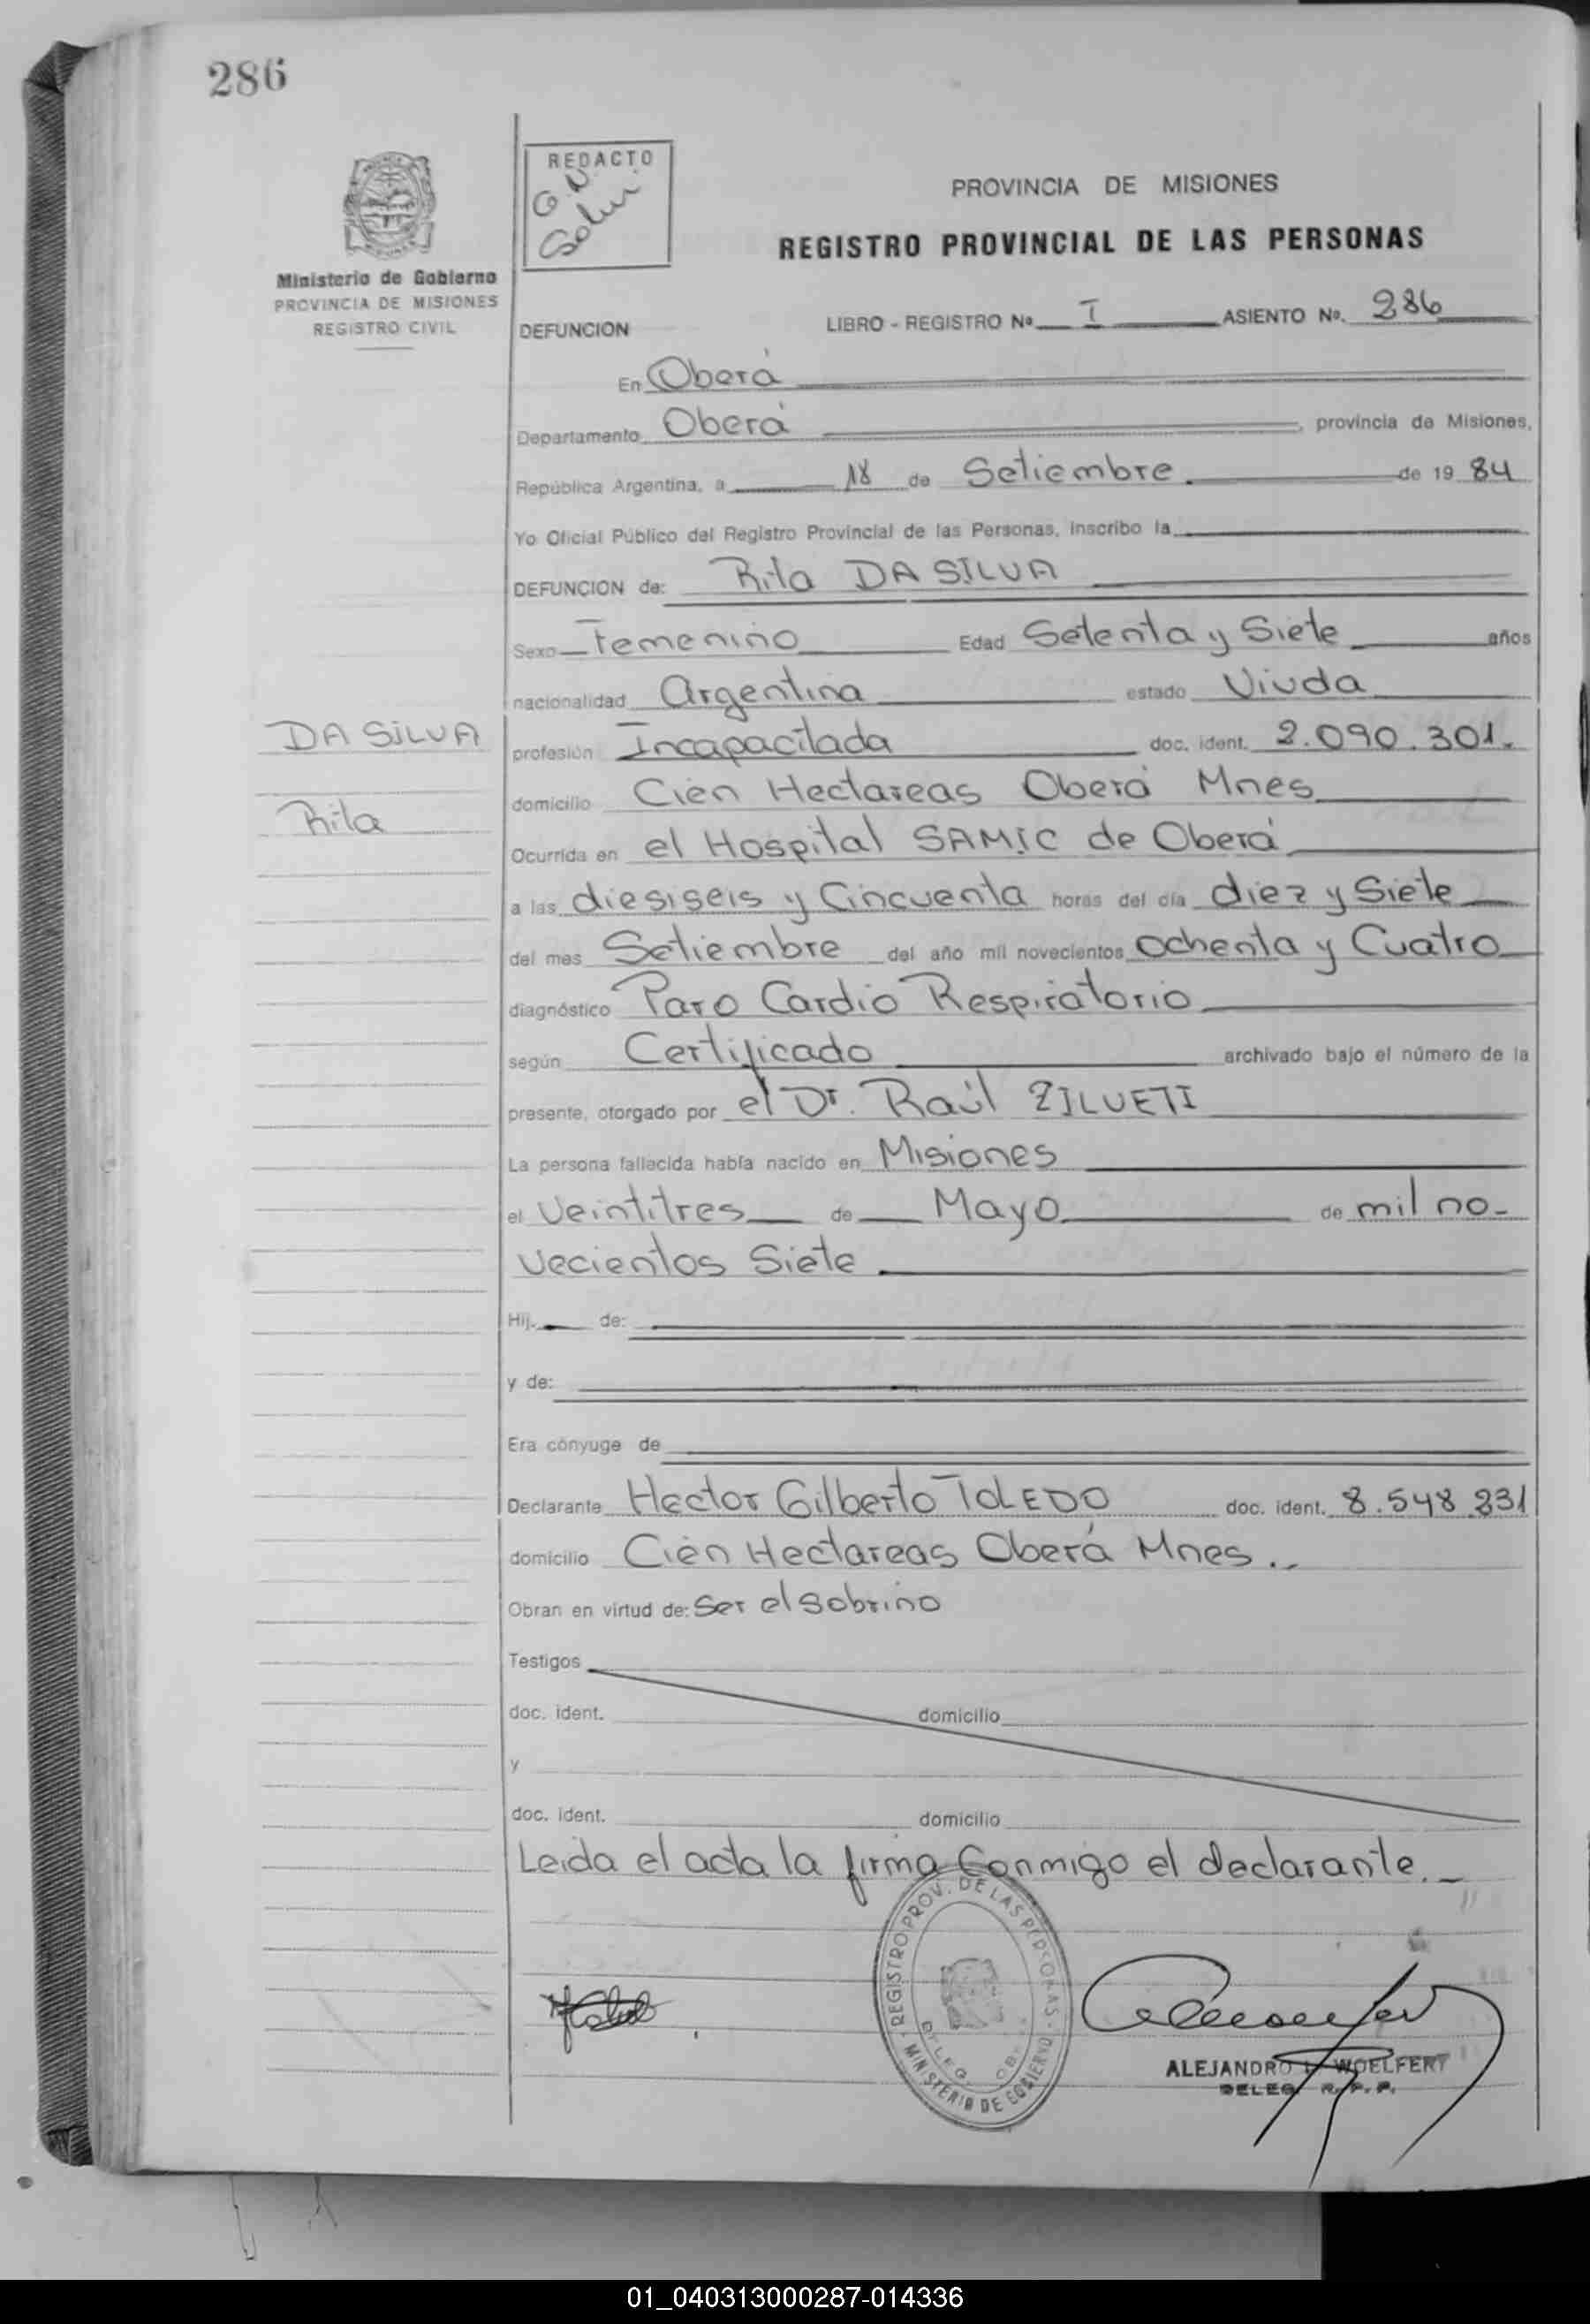 286
REDACTO
G.N.
Ministerio de Gobierno
PROVINCIA DE MISIONES
REGISTRO CIVIL
PROVINCIA DE MISIONES
REGISTRO PROVINCIAL DE LAS PERSONAS
DEFUNCION LIBRO - REGISTRO Nº I ASIENTO Nº. 286
En Oberá
Departamento Oberá, provincia de Misiones,
República Argentina, a 18 de Setiembre. de 19 84
Yo Oficial Público del Registro Provincial de las Personas, inscribo la
DEFUNCION de: Rita DA SILVA
Sexo Femenino Edad Setenta y Siete años
nacionalidad Argentina estado Viuda
DA SILVA
Rita
profesión Incapacitada doc. ident. 2.090.301.
domicilio Cien Hectareas Oberá Mnes
Ocurrida en el Hospital SAMIC de Oberá
a las diesiseis y Cincuenta horas del día diez y Siete
del mes Setiembre del año mil novecientos Ochenta y Cuatro
diagnóstico Paro Cardio Respiratorio
según Certificado archivado bajo el número de la
presente, otorgado por el Dr. Raúl ZILVETI
La persona fallecida había nacido en Misiones
el Veintitres de Mayo de mil no-
vecientos Siete
Hij. de:
y de:
Era cónyuge de
Declarante Hector Gilberto TOLEDO doc. ident. 8.548.231
domicilio Cien Hectareas Oberá Mnes.
Obran en virtud de: Ser el sobrino
Testigos
doc. ident. domicilio
y
doc. ident. domicilio
Leida el acta la firma Conmigo el declarante.
REGISTRO PROV. DE LAS PERSONAS - MINISTERIO DE GOBIERNO
DELEG. OB
ALEJANDRO WOELFERT
DELEG. R.P.P.
01_040313000287-014336